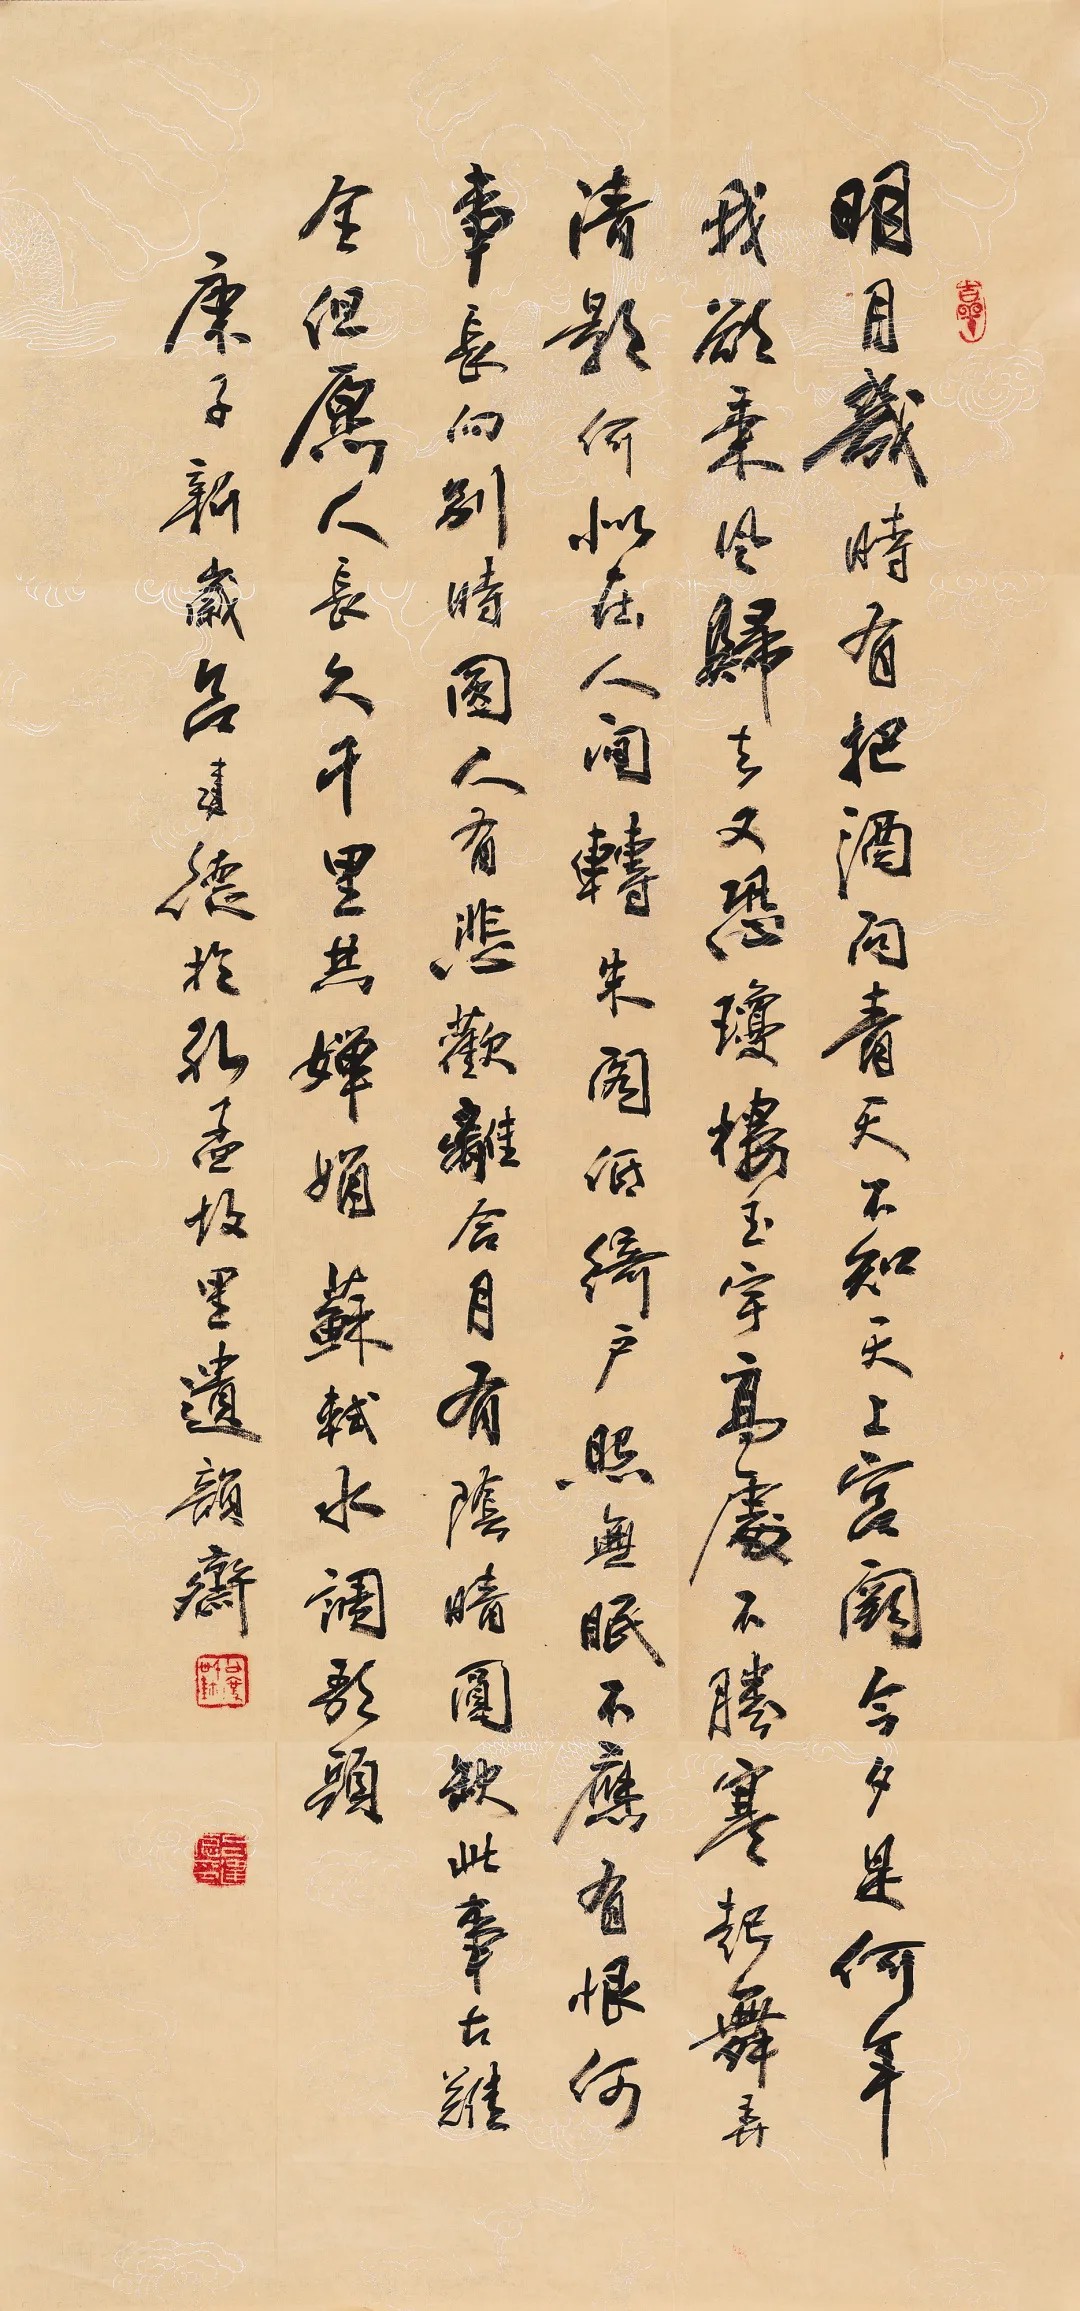 明月幾時有把酒問青天不知天上宫闕今夕是何年
我欲乘风歸去又恐瓊樓玉宇高處不勝寒起舞弄
清影何似在人間轉朱閣低綺户照無眠不應有恨何
事長向别時圓人有悲歡離合月有陰晴圓缺此事古難
全但愿人長久千里共嬋娟 蘇軾水調歌頭
庚子新歲吕建德於孔孟故里遺韻齋